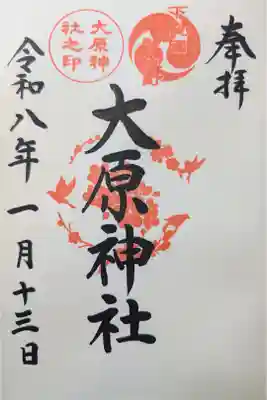 奉拝
大原神社
大原神
社之印
令和八年一月十三日